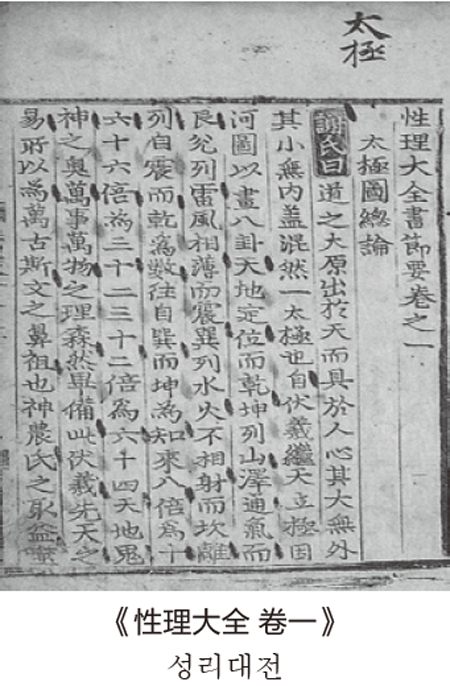 太極
性理大全書節要卷之一
太極圖總論
謝氏曰道之大原出於天而具於人心其大無外
其小無內盖混然一太極也自伏羲繼天立極因
河圖以畫八卦天地定位而乾坤列山澤通氣而
艮兊列雷風相薄而震巽列水火不相射而坎離
列自震而乾為數徃自巽而坤為知來八倍為十
六十六倍為三十二三十二倍為六十四天地鬼
神之奥萬事萬物之理森然畢備此伏羲先天之
易所以為萬古斯文之鼻祖也神農氏之取益噬
《性理大全 卷一》
성리대전